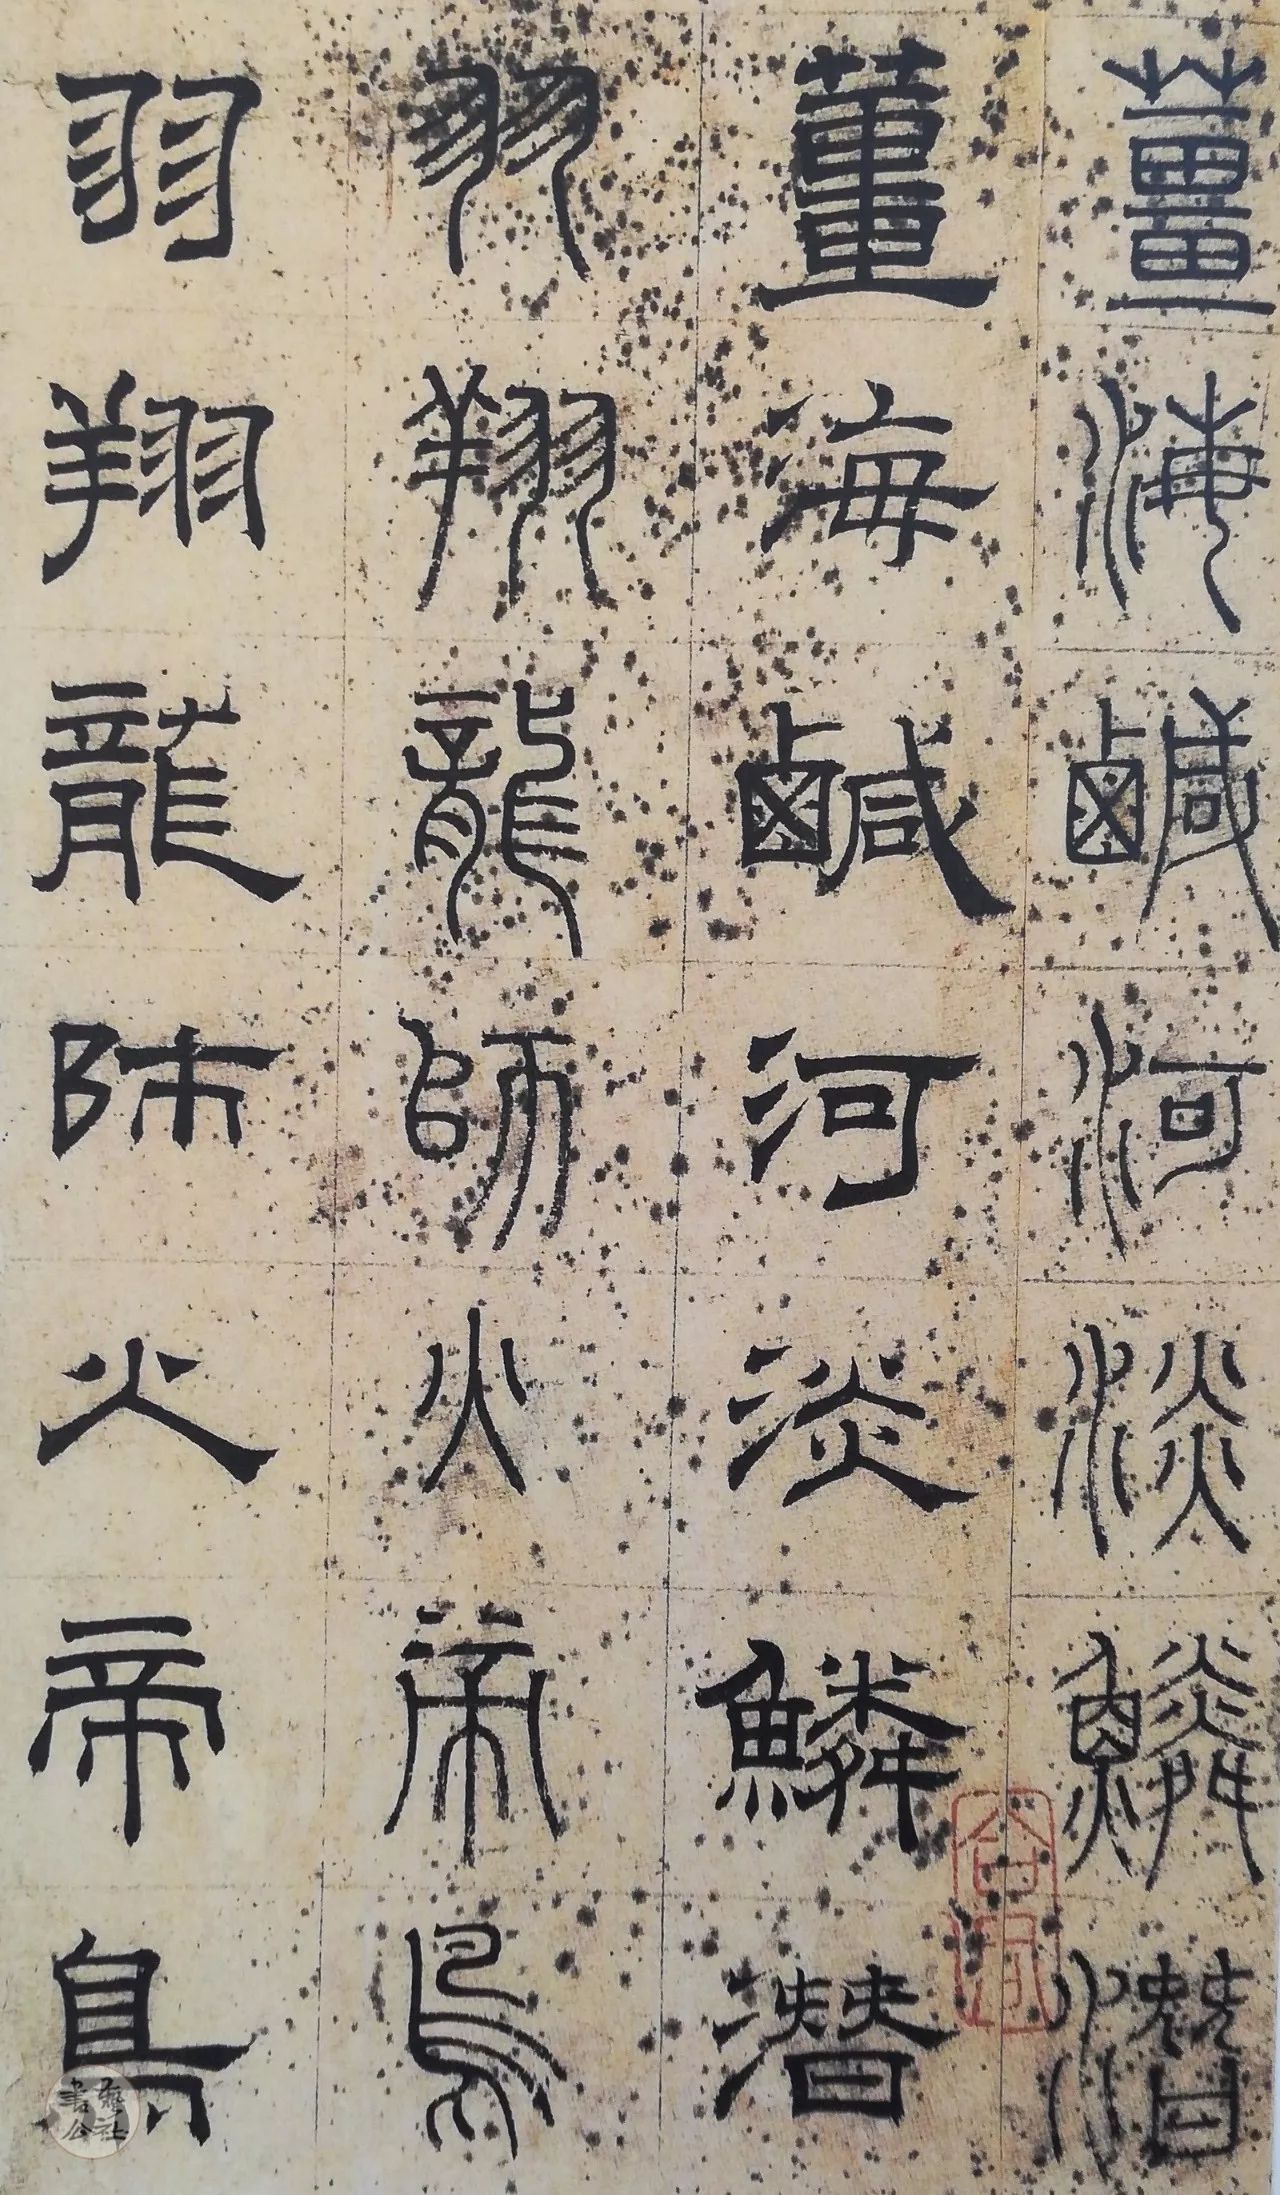 薑海鹹河淡鱗潛
薑海鹹河淡鱗潛
羽翔龍師火帝鳥
羽翔龍師火帝鳥
書藝公社